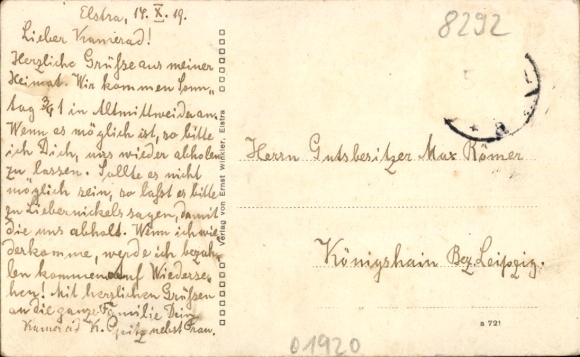 Elstra, 14. X. 19.
Lieber Kamerad!
Herzliche Grüße aus meiner
Heimat. Wir kommen Sonn-
tag 3/4 1 in Altmittweida an.
Wenn es möglich ist, so bitte
ich Dich, uns wieder abholen
zu lassen. Sollte es nicht
möglich sein, so laßt es bitte
zu Liebernickels sagen, damit
die uns abholt. Wenn ich wie
derkomme, werde ich bezah-
len kommen auf Wiederse-
hen! Mit herzlichen Grüßen
an die ganze Familie Dein
Kamerad K. nebst Frau.
Verlag von Ernst Winkler, Elstra
8292
Herrn Gutsbesitzer Max Römer
Königshain Bez. Leipzig.
a 721
01920